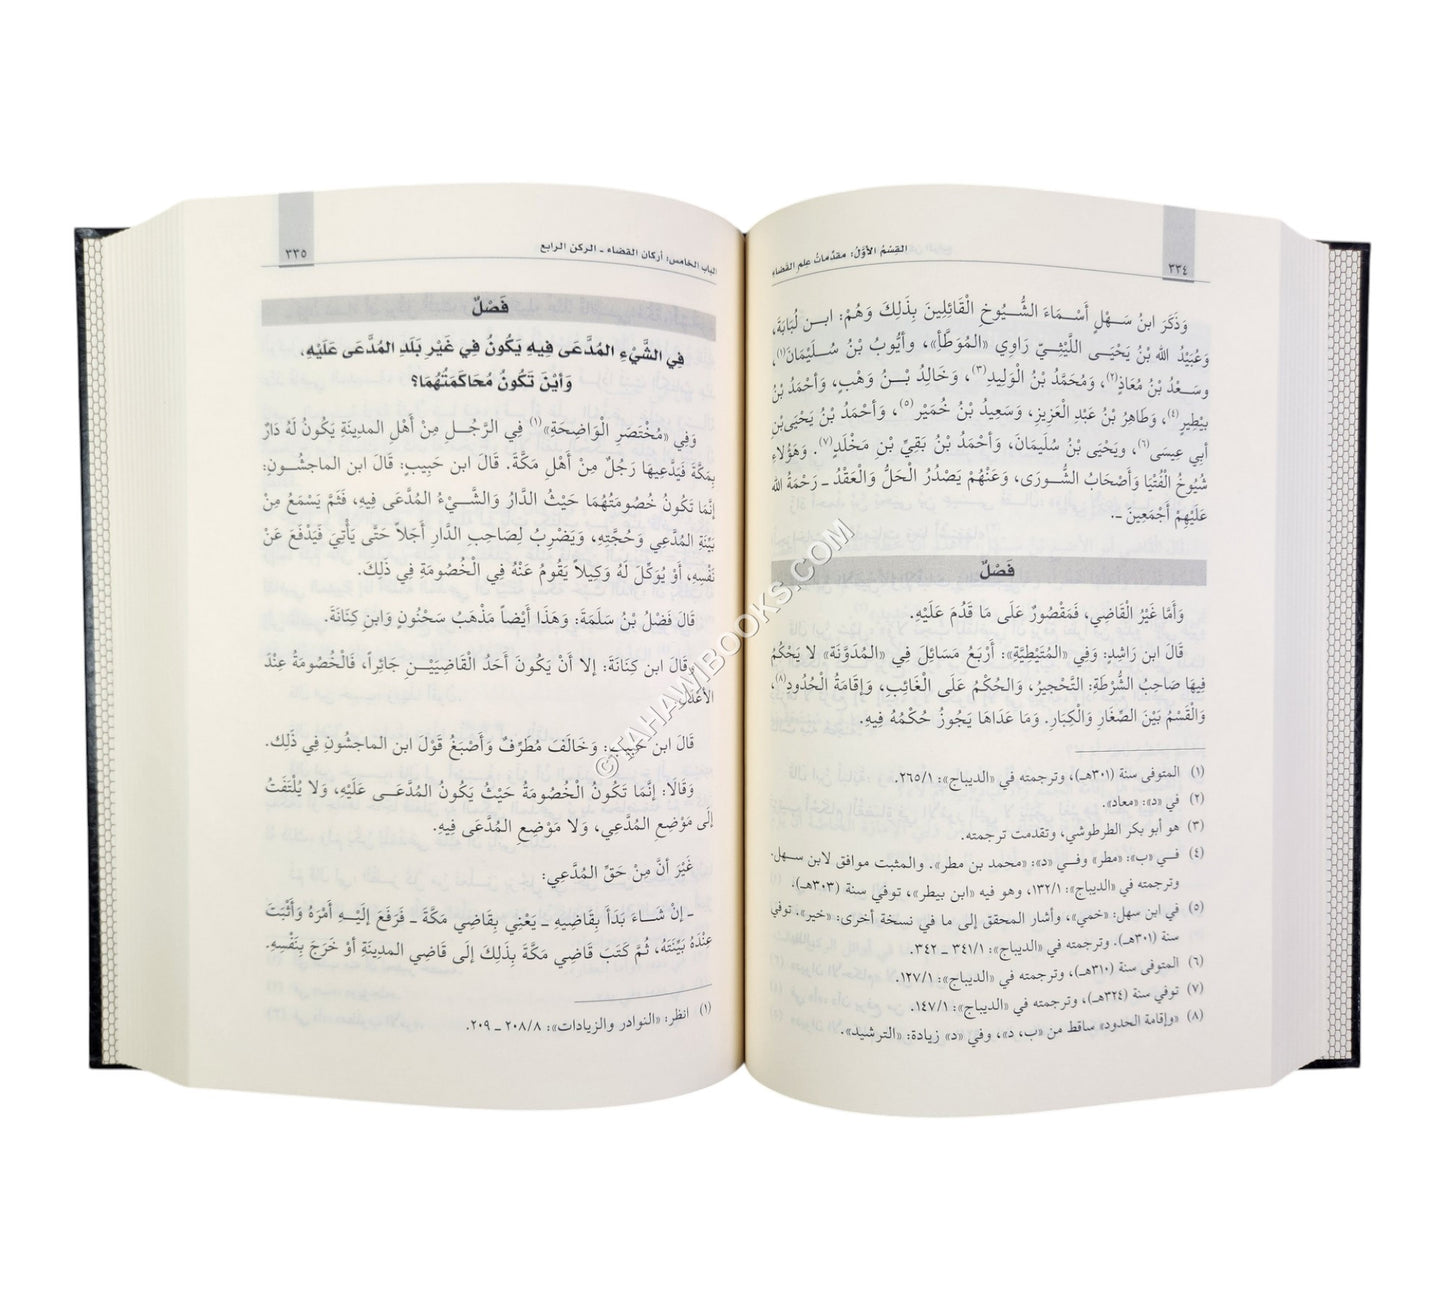 ٣٣٤
القِسْمُ الأوَّلُ: مقدّماتُ علمِ القضاءِ
وَذَكَرَ ابنُ سَهْلٍ أَسْمَاءَ الشُّيُوخِ الْقَائِلِينَ بِذَلِكَ وَهُمْ: ابـن لُبَابَةَ،
وَعُبَيْدُ الله بْنُ يَحْيَـى اللَّيْثِيّ رَاوِي «الْمُوَطَّأ»، وأيُّوبُ بْنُ سُلَيْمَانَ(١)،
وسَعْدُ بْنُ مُعَاذٍ(٢)، وَمُحَمَّدُ بْنُ الْوَلِيدِ(٣)، وَخَالِدُ بْنُ وَهْبٍ، وَأحْمَدُ بْنُ
بَيْطِيرٍ(٤)، وَطَاهِرُ بْنُ عَبْدِ الْعَزِيزِ، وَسَعِيدُ بْنُ خُمَيْرٍ(٥)، وَأحْمَدُ بْنُ يَحْيَى بْنِ
أبِي عِيسَى(٦)، ويَحْيَى بْنُ سُلَيمَانَ، وَأحْمَدُ بْنُ بَقِيِّ بْنِ مَخْلَدٍ(٧). وَهَؤُلَاءِ
شُيُوخُ الْفُتْيَا وَأَصْحَابُ الشُّورَى، وَعَنْهُمْ يَصْدُرُ الْحَلُّ وَالْعَقْدُ ـ رَحْمَةُ الله
عَلَيْهِمْ أَجْمَعِينَ ـ.
فَصْلٌ
وَأَمَّا غَيْرُ الْقَاضِي، فَمَقْصُورٌ عَلَى مَا قَدُمَ عَلَيْهِ.
قَالَ ابن رَاشِدٍ: وَفِي «الْمُتَيْطِيَّةِ»: أَرْبَعُ مَسَائِلَ فِي «الْمُدَوَّنَةِ» لا يَحْكُمُ
فِيهَا صَاحِبُ الشُّرْطَةِ: التَّحْجِيرُ، وَالْحُكْمُ عَلَى الْغَائِبِ، وَإقَامَةُ الْحُدُودِ(٨)،
وَالْقَسْمُ بَيْنَ الصِّغَارِ وَالْكِبَارِ. وَمَا عَدَاهَا يَجُوزُ حُكْمُهُ فِيهِ.
(١) المتوفى سنة (٣٠١هـ)، وترجمته في «الديباج»: ٢٦٥/١.
(٢) في «د»: «معاد».
(٣) هو أبو بكر الطرطوشي، وتقدمت ترجمته.
(٤) فـي «ب»: «مطر» وفـي «د»: «محمد بن مطر». والمثبت موافق لابن سـهل.
وترجمته في «الديباج»: ١٣٢/١، وهو فيه «ابن بيطر»، توفي سنة (٣٠٣هـ).
(٥) في ابن سهل: «خمي»، وأشار المحقق إلى ما في نسخة أخرى: «خير». توفي
سنة (٣٠١هـ). وترجمته في «الديباج»: ٣٤١/١ ـ ٣٤٢.
(٦) المتوفى سنة (٣١٠هـ)، وترجمته في «الديباج»: ١٢٧/١.
(٧) توفي سنة (٣٢٤هـ)، وترجمته في «الديباج»: ١٤٧/١.
(٨) «وإقامة الحدود» ساقط من «ب، د»، وفي «د» زيادة: «الترشيد».
الباب الخامس: أركان القضاء ـ الركن الرابع
٣٣٥
فَصْلٌ
فِي الشَّيْءِ المُدَّعَى فِيهِ يَكُونُ فِي غَيْرِ بَلَدِ المُدَّعَى عَلَيْهِ،
وَأيْنَ تَكُونُ مُحَاكَمَتُهُمَا؟
وَفِي «مُخْتَصَرِ الْوَاضِحَةِ»(١) فِي الرَّجُلِ مِنْ أَهْلِ المدِينَةِ يَكُونُ لَهُ دَارٌ
بِمَكَّةَ فَيَدَّعِيهَا رَجُلٌ مِنْ أَهْلِ مَكَّةَ. قَالَ ابن حَبِيبٍ: قَالَ ابن الماجشُـونِ:
إنَّمَا تَكُونُ خُصُومَتُهُمَا حَيْثُ الدَّارُ وَالشَّيْءُ المُدَّعَى فِيهِ، فَثَمَّ يَسْمَعُ مِنْ
بَيِّنَةِ المُدَّعِي وَحُجَّتِهِ، وَيَضْرِبُ لِصَاحِبِ الدَّارِ أَجَلاً حَتَّى يَأْتِيَ فَيَدْفَعَ عَنْ
نَفْسِهِ، أَوْ يُوَكِّلَ لَهُ وَكِيلاً يَقُومُ عَنْهُ فِي الْخُصُومَةِ فِي ذَلِكَ.
قَالَ فَضْلُ بْنُ سَلَمَةَ: وَهَذَا أيْضاً مَذْهَبُ سَحْنُونٍ وَابنِ كِنَانَةَ.
وَقَالَ ابن كِنَانَةَ: إلا أَنْ يَكُونَ أَحَدُ الْقَاضِيَيْـنِ جَائِراً، فَالْخُصُومَةُ عِنْدَ
الأعْدَلِ.
قَالَ ابن حَبِيبٍ: وَخَالَفَ مُطَرِّفٌ وَأَصْبَغُ قَوْلَ ابن الماجشُونِ فِي ذَلِكَ.
وَقَالَا: إنَّمَا تَكُونُ الْخُصُومَةُ حَيْثُ يَكُونُ المُدَّعَـى عَلَيْهِ، وَلا يُلْتَفَتُ
إلَى مَوْضِعِ المُدَّعِي، وَلا مَوْضِعِ المُدَّعَى فِيهِ.
غَيْرَ أنَّ مِنْ حَقِّ المُدَّعِي:
ـ إنْ شَـاءَ بَدَأَ بِقَاضِيهِ ـ يَعْنِي بِقَاضِي مَكَّةَ ـ فَرَفَعَ إلَيْـهِ أَمْرَهُ وَأَثْبَتَ
عِنْدَهُ بَيِّنَتَهُ، ثُمَّ كَتَبَ قَاضِي مَكَّةَ بِذَلِكَ إلَى قَاضِي المدِينَةِ أوْ خَرَجَ بِنَفْسِهِ.
(١) انظر: «النوادر والزيادات»: ٢٠٨/٨ ـ ٢٠٩.
© TAHAWIBOOKS.COM